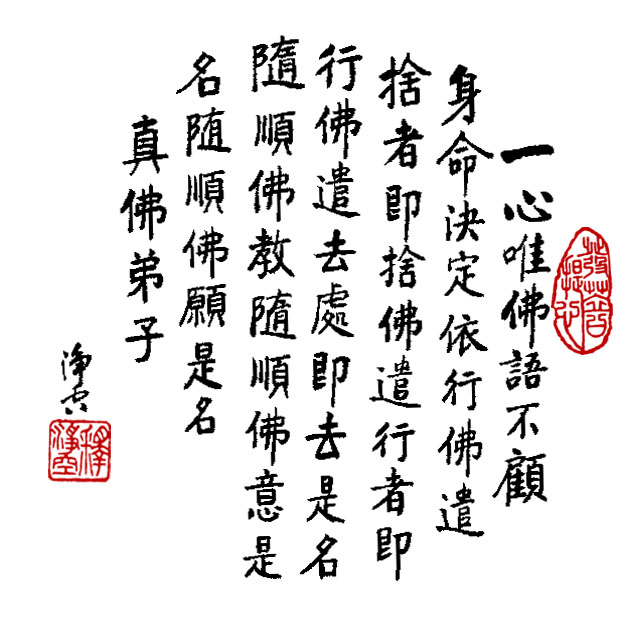 一心唯佛語不顧
身命決定依行佛遣
捨者即捨佛遣行者即
行佛遣去處即去是名
隨順佛教隨順佛意是
名随順佛願是名
真佛弟子
淨空
釋淨空
發菩提心